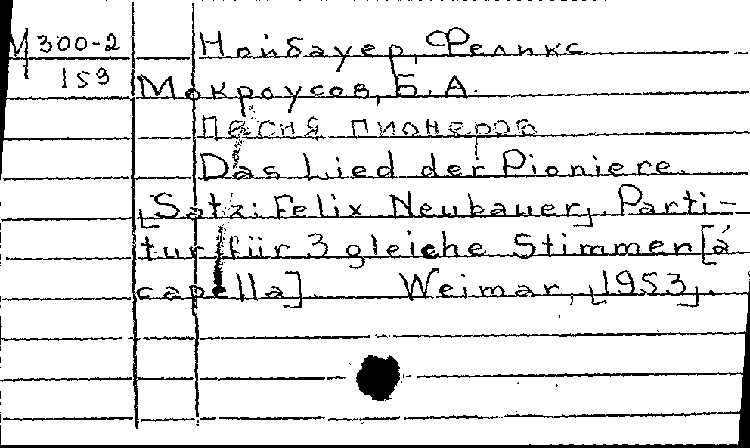 М 300-2 Нойбауер, Феликс
153 Мокроусов, Б. А.
Песня пионеров
Das Lied der Pioniere.
[Satz: Felix Neubauer]. Parti-
tur für 3 gleiche Stimmen [á
capella] Weimar, [1953].